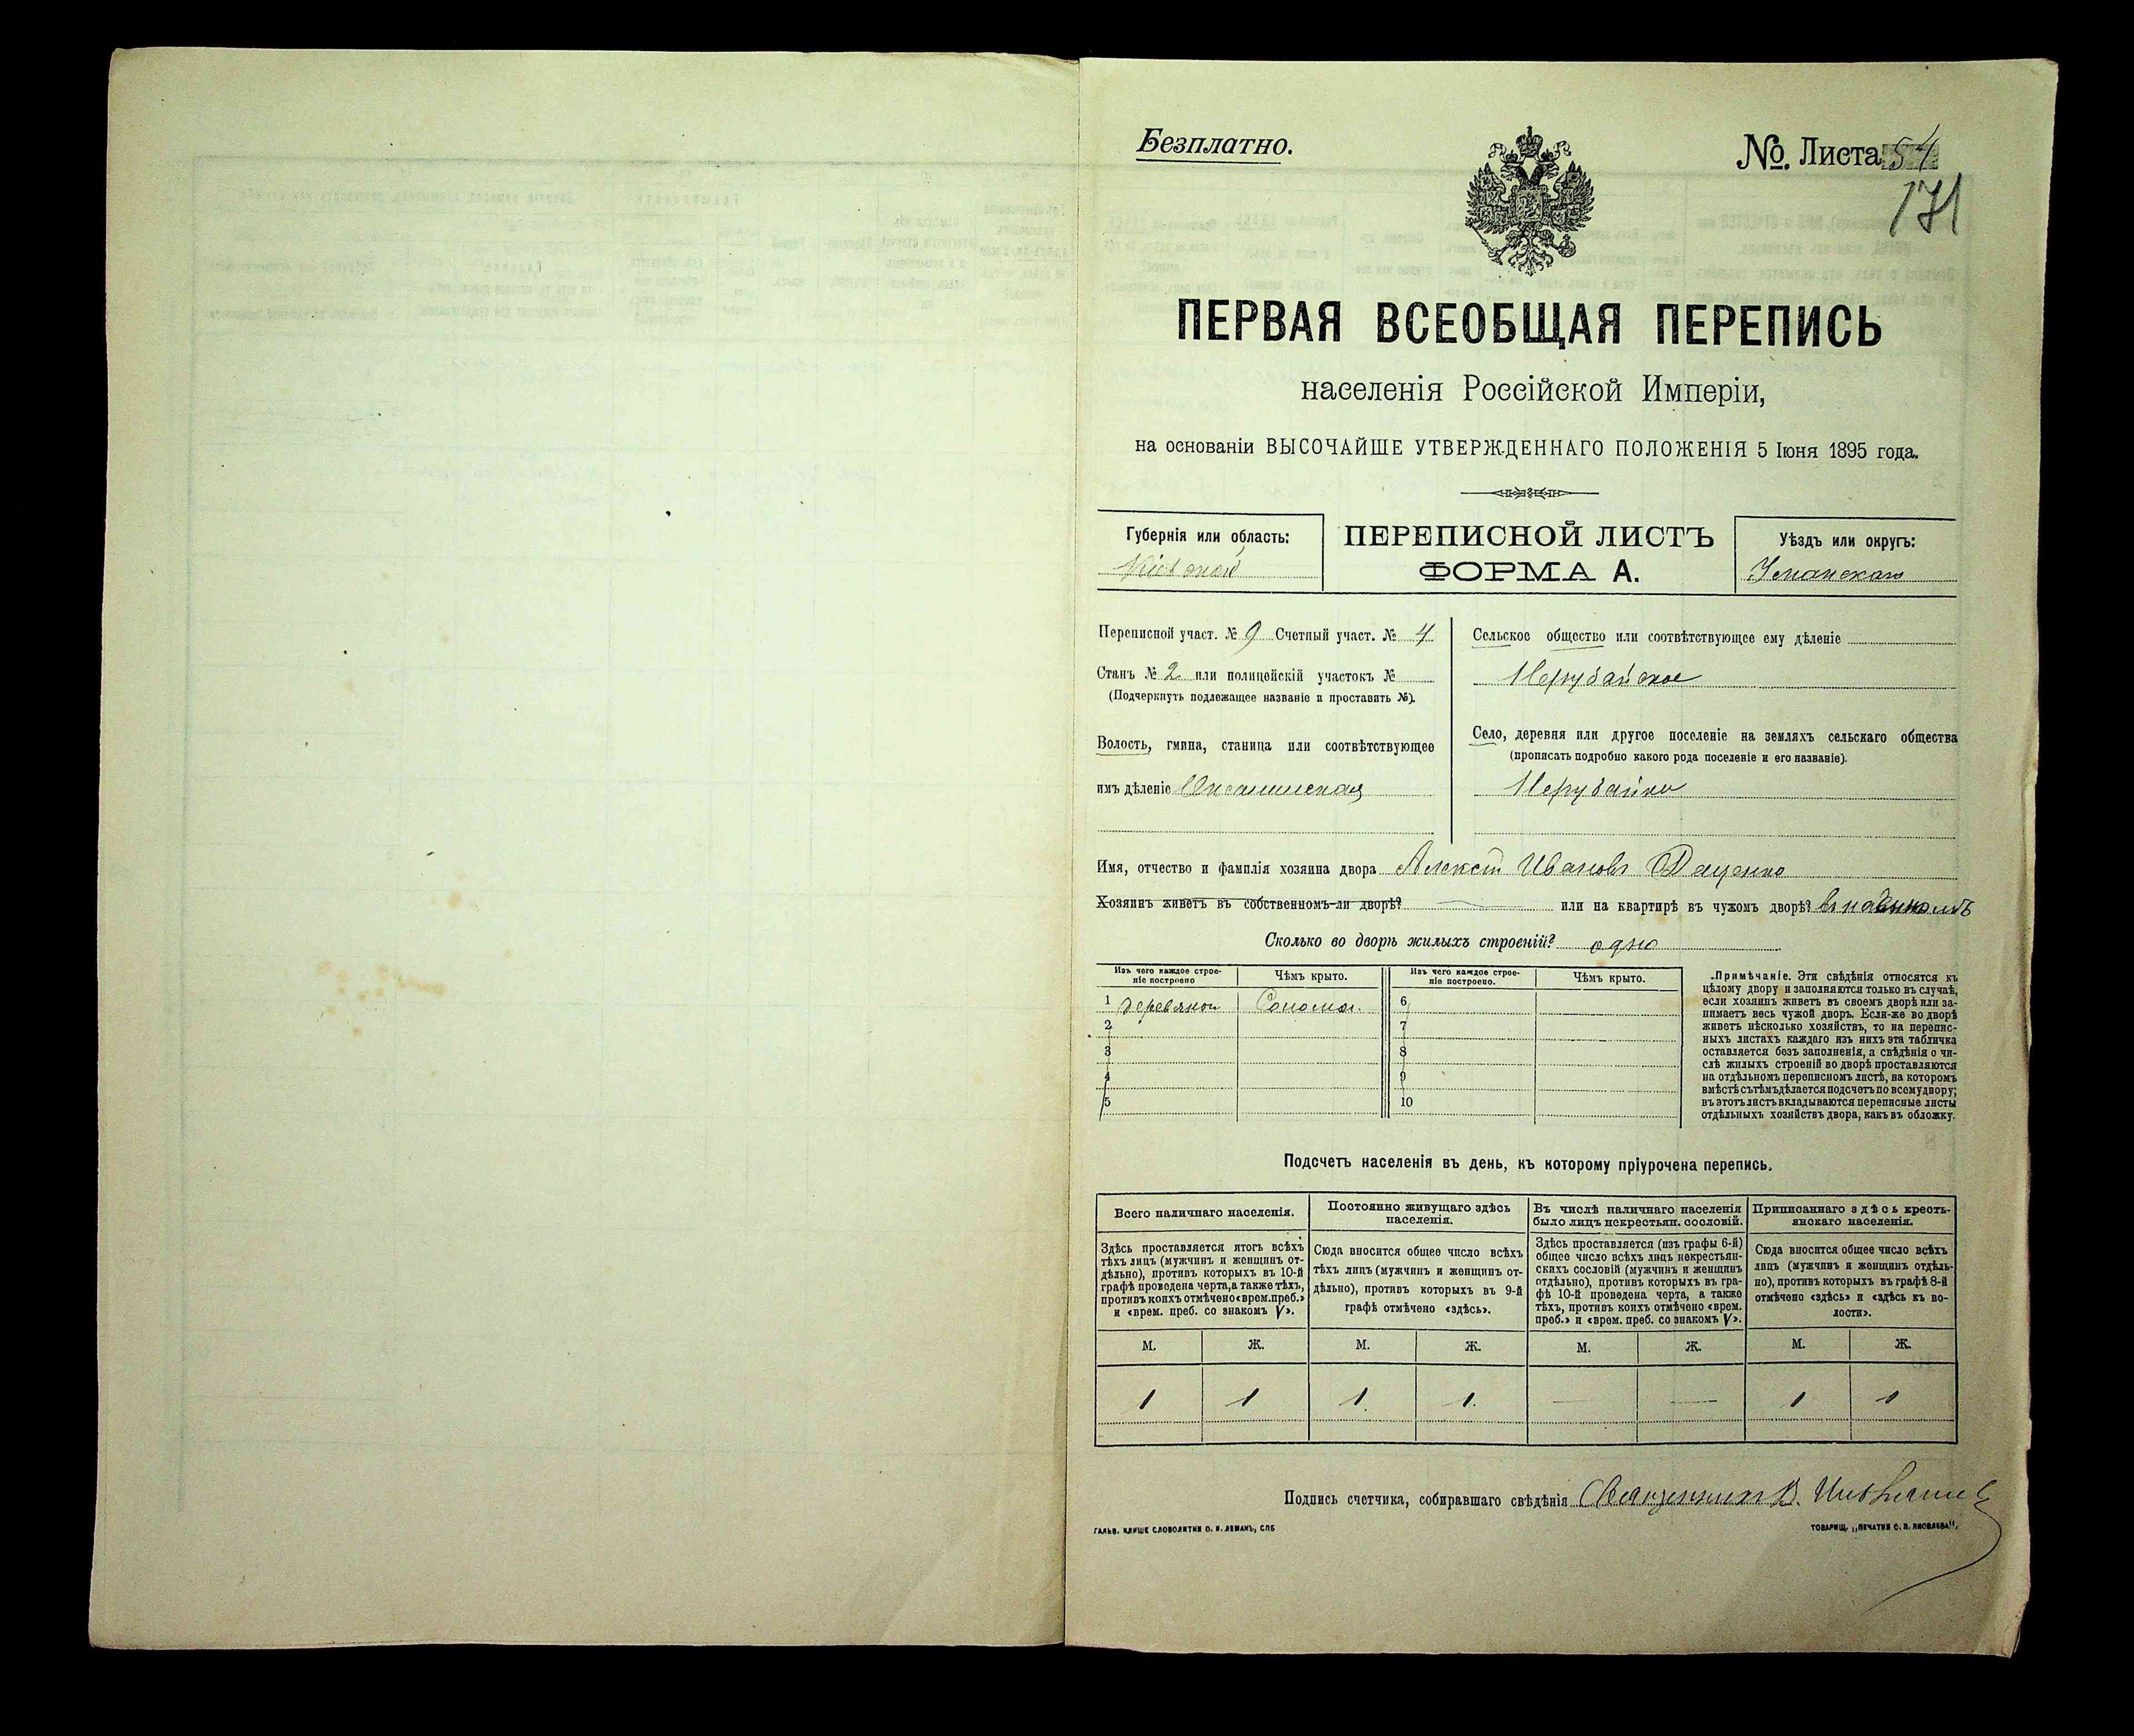 Безплатно.
№. Листа 54
171
ПЕРВАЯ ВСЕОБЩАЯ ПЕРЕПИСЬ
населенія Россійской Имперіи,
на основаніи ВЫСОЧАЙШЕ УТВЕРЖДЕННАГО ПОЛОЖЕНІЯ 5 Іюня 1895 года.
Губернія или область:
Кіевской
ПЕРЕПИСНОЙ ЛИСТЪ
ФОРМА А.
Уѣздъ или округъ:
Уманскаго
Переписной участ. № 9 Счетный участ. № 4
Станъ № 2 или полицейскій участокъ №
(Подчеркнуть подлежащее названіе и проставить №).
Волость, гмина, станица или соотвѣтствующее
имъ дѣленіе Оксанинская
Сельское общество или соотвѣтствующее ему дѣленіе
Нерубайское
Село, деревня или другое поселеніе на земляхъ сельскаго общества
(прописать подробно какого рода поселеніе и его названіе).
Нерубайка
Имя, отчество и фамилія хозяина двора Алексѣй Ивановъ Даценко
Хозяинъ живетъ въ собственномъ-ли дворѣ? или на квартирѣ въ чужомъ дворѣ?
Сколько во дворѣ жилыхъ строеній? одно
Изъ чего каждое строеніе построено
Чѣмъ крыто.
Изъ чего каждое строеніе построено.
Чѣмъ крыто.
1 деревяное Солома. 6
2 7
3 8
4 9
5 10
Примѣчаніе. Эти свѣдѣнія относятся къ
цѣлому двору и заполняются только въ случаѣ,
если хозяинъ живетъ въ своемъ дворѣ или за-
нимаетъ весь чужой дворъ. Если-же во дворѣ
живетъ нѣсколько хозяйствъ, то на перепис-
ныхъ листахъ каждаго изъ нихъ эта табличка
оставляется безъ заполненія, а свѣдѣнія о чи-
слѣ жилыхъ строеній во дворѣ проставляются
на отдѣльномъ переписномъ листѣ, на которомъ
вмѣстѣ съ тѣмъ дѣлается подсчетъ по всему двору;
въ этотъ листъ вкладываются переписные листы
отдѣльныхъ хозяйствъ двора, какъ въ обложку.
Подсчетъ населенія въ день, къ которому пріурочена перепись.
Всего наличнаго населенія.
Постоянно живущаго здѣсь
населенія.
Въ числѣ наличнаго населенія
было лицъ некрестьян. сословій.
Приписаннаго здѣсь кресть-
янскаго населенія.
Здѣсь проставляется итогъ всѣхъ
тѣхъ лицъ (мужчинъ и женщинъ от-
дѣльно), противъ которыхъ въ 10-й
графѣ проведена черта, а также тѣхъ,
противъ коихъ отмѣчено «врем. преб.»
и «врем. преб. со знакомъ V».
Сюда вносится общее число всѣхъ
тѣхъ лицъ (мужчинъ и женщинъ от-
дѣльно), противъ которыхъ въ 9-й
графѣ отмѣчено «здѣсь».
Здѣсь проставляется (изъ графы 6-й)
общее число всѣхъ лицъ некрестьян-
скихъ сословій (мужчинъ и женщинъ
отдѣльно), противъ которыхъ въ гра-
фѣ 10-й проведена черта, а также
тѣхъ, противъ коихъ отмѣчено «врем.
преб.» и «врем. преб. со знакомъ V».
Сюда вносится общее число всѣхъ
лицъ (мужчинъ и женщинъ отдѣль-
но), противъ которыхъ въ графѣ 8-й
отмѣчено «здѣсь» и «здѣсь къ во-
лости».
М. Ж. М. Ж. М. Ж. М. Ж.
1 1 1. 1. — — 1 1
Подпись счетчика, собиравшаго свѣдѣнія Священникъ В.
ГАЛЬВ. КЛИШЕ СЛОВОЛИТНИ О. И. ЛЕМАНЪ, СПБ
ТОВАРИЩ. „ПЕЧАТНИ С. П. ЯКОВЛЕВА",